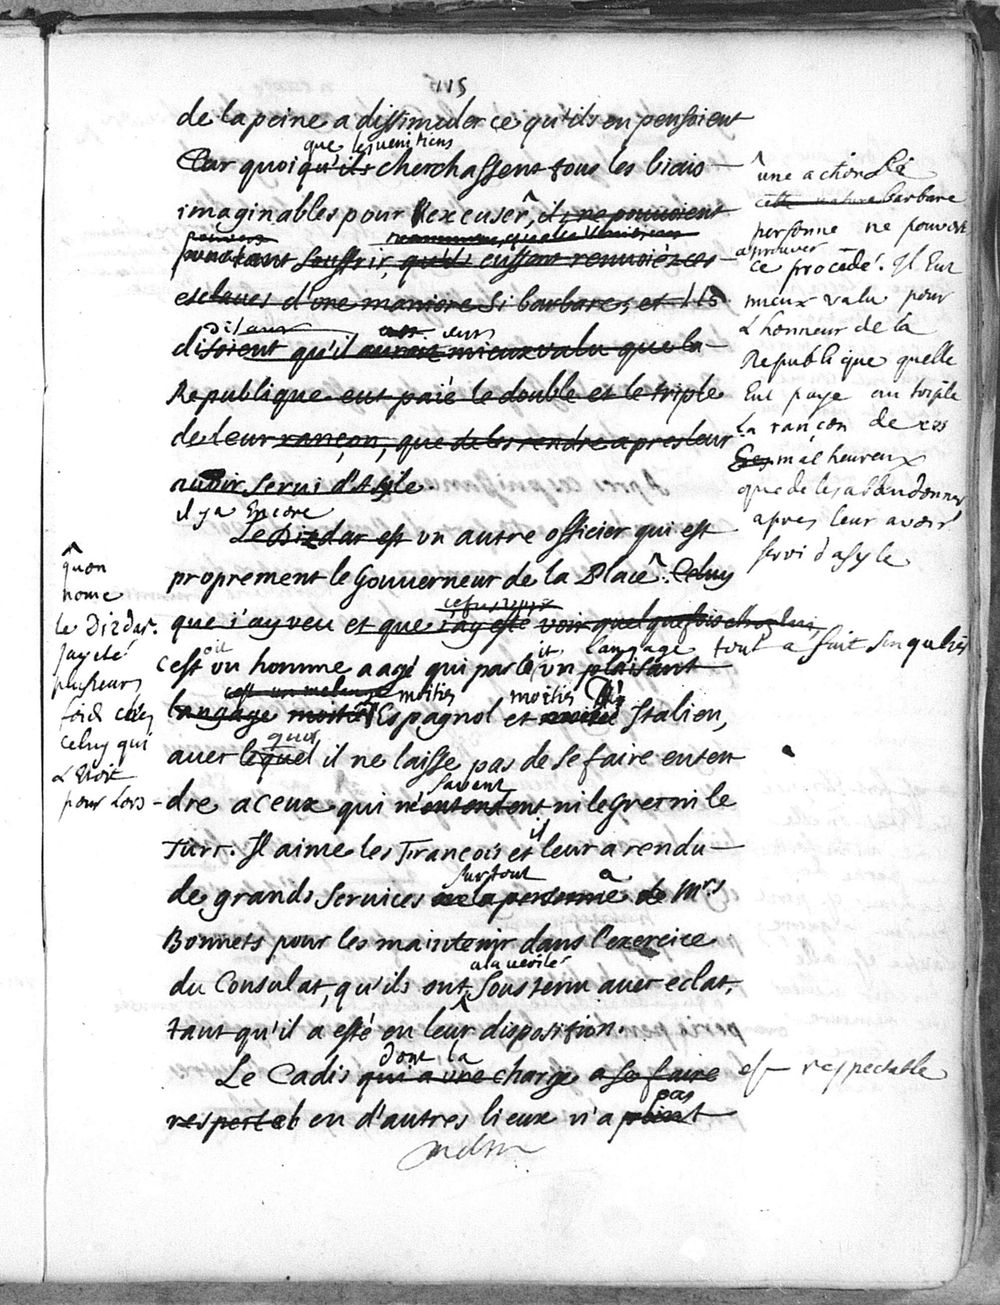 115
de la peine a dissimuler ce qu'ils en pensoient
que les venitiens
Car quoi qu'ils cherchassent tous les biais
imaginables pour s'excuser, il ne pouvoient
pourtant souffrir, qu'ils eussent renvoié ces
esclaves d'une maniere si barbare, et ils
disoient qu'il auroit mieux valu que la
Republique eut paié le double et le triple
de leur rançon, que de les rendre apres leur
avoir servi d'Asyle.
il y a Encore
Le Dizdar est un autre officier qui est
proprement le Gouverneur de la Place. Celuy
que j'ay veu et que j'ay esté voir quelquefois chez lui
c'est un homme aagé qui parle un plaisant
langage tout a fait singulier
c'est un melange moitié moitié
langage moitié Espagnol et moitié Italien,
quoi
avec lequel il ne laisse pas de se faire enten
savent
dre a ceux qui n'entendent ni le Grec ni le
Turc. Il aime les François et leur a rendu
il
surtout a
de grands services a la personne de Mrs
Bonnets pour les maintenir dans l'exercice
a la verité
du Consulat, qu'ils ont soustenu avec eclat,
tant qu'il a esté en leur disposition.
dont la
Le Cadis qui a une charge a se faire est respectable
pas
respecter en d'autres lieux n'a point
une action si
cette nature barbare
personne ne pouvoit
aprouver
ce procedé. Il Eut
mieux valu pour
L'honneur de la
Republique quelle
Eut paye au triple
La rançon de ces
malheureux
que de les abandonner
apres leur avoir
servi d'asyle
quon
nome
le Dizdar.
jay eté
plusieurs
fois chés
celuy qui
L'Etoit
pour Lors